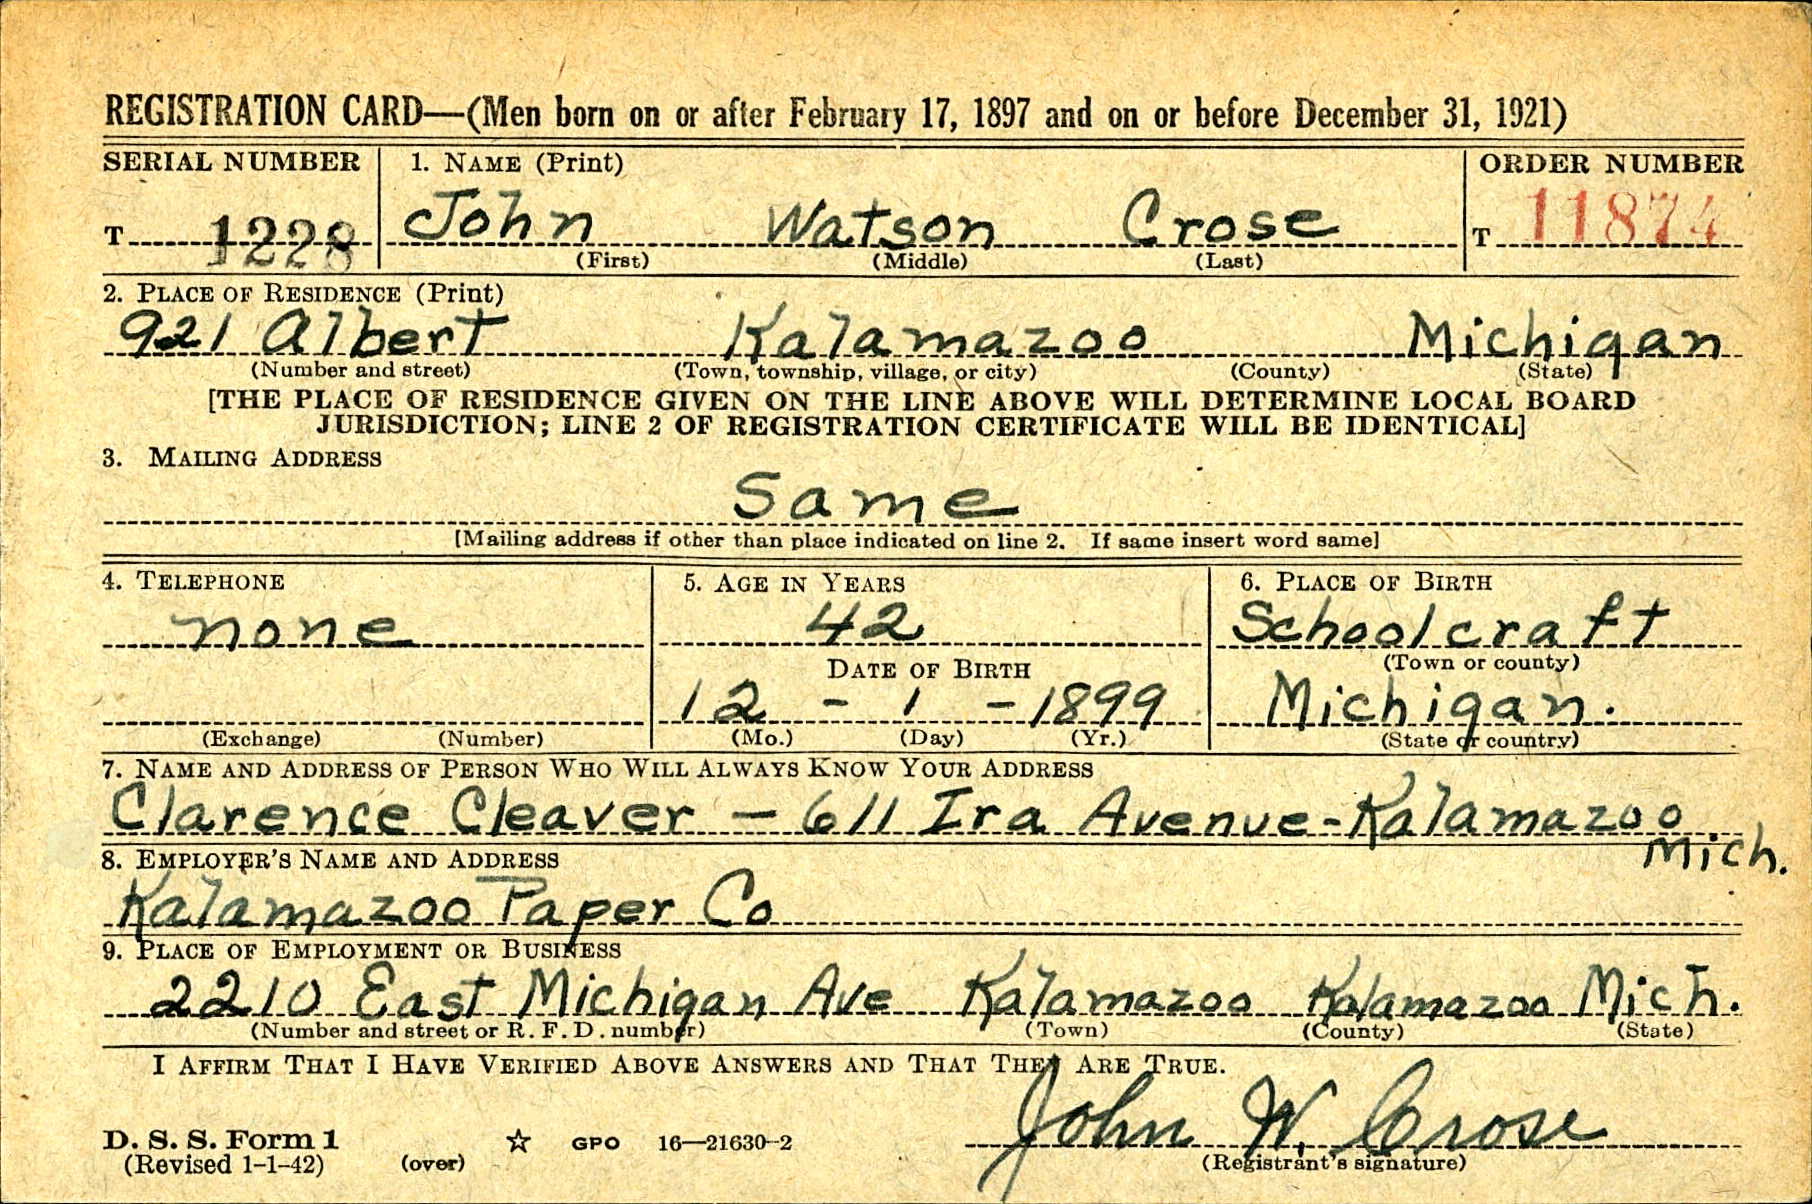 REGISTRATION CARD—(Men born on or after February 17, 1897 and on or before December 31, 1921)
SERIAL NUMBER 1. NAME (Print) ORDER NUMBER
T 1228 John Watson Crose T 11874
(First) (Middle) (Last)
2. PLACE OF RESIDENCE (Print)
921 Albert Kalamazoo Michigan
(Number and street) (Town, township, village, or city) (County) (State)
[THE PLACE OF RESIDENCE GIVEN ON THE LINE ABOVE WILL DETERMINE LOCAL BOARD
JURISDICTION; LINE 2 OF REGISTRATION CERTIFICATE WILL BE IDENTICAL]
3. MAILING ADDRESS
Same
[Mailing address if other than place indicated on line 2. If same insert word same]
4. TELEPHONE 5. AGE IN YEARS 6. PLACE OF BIRTH
none 42 Schoolcraft
(Town or county)
DATE OF BIRTH
12 - 1 - 1899 Michigan.
(Exchange) (Number) (Mo.) (Day) (Yr.) (State or country)
7. NAME AND ADDRESS OF PERSON WHO WILL ALWAYS KNOW YOUR ADDRESS
Clarence Cleaver — 611 Ira Avenue - Kalamazoo
Mich.
8. EMPLOYER'S NAME AND ADDRESS
Kalamazoo Paper Co
9. PLACE OF EMPLOYMENT OR BUSINESS
2210 East Michigan Ave Kalamazoo Kalamazoo Mich.
(Number and street or R. F. D. number) (Town) (County) (State)
I AFFIRM THAT I HAVE VERIFIED ABOVE ANSWERS AND THAT THEY ARE TRUE.
John W. Crose
D. S. S. Form 1 ☆ GPO 16—21630-2
(Revised 1-1-42) (over) (Registrant's signature)